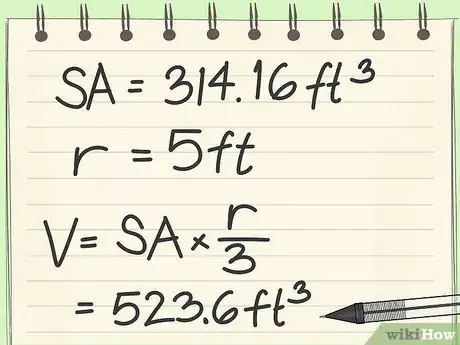 SA = 314.16 ft³
r = 5ft
V = SA × r/3
= 523.6 ft³
wikiHow